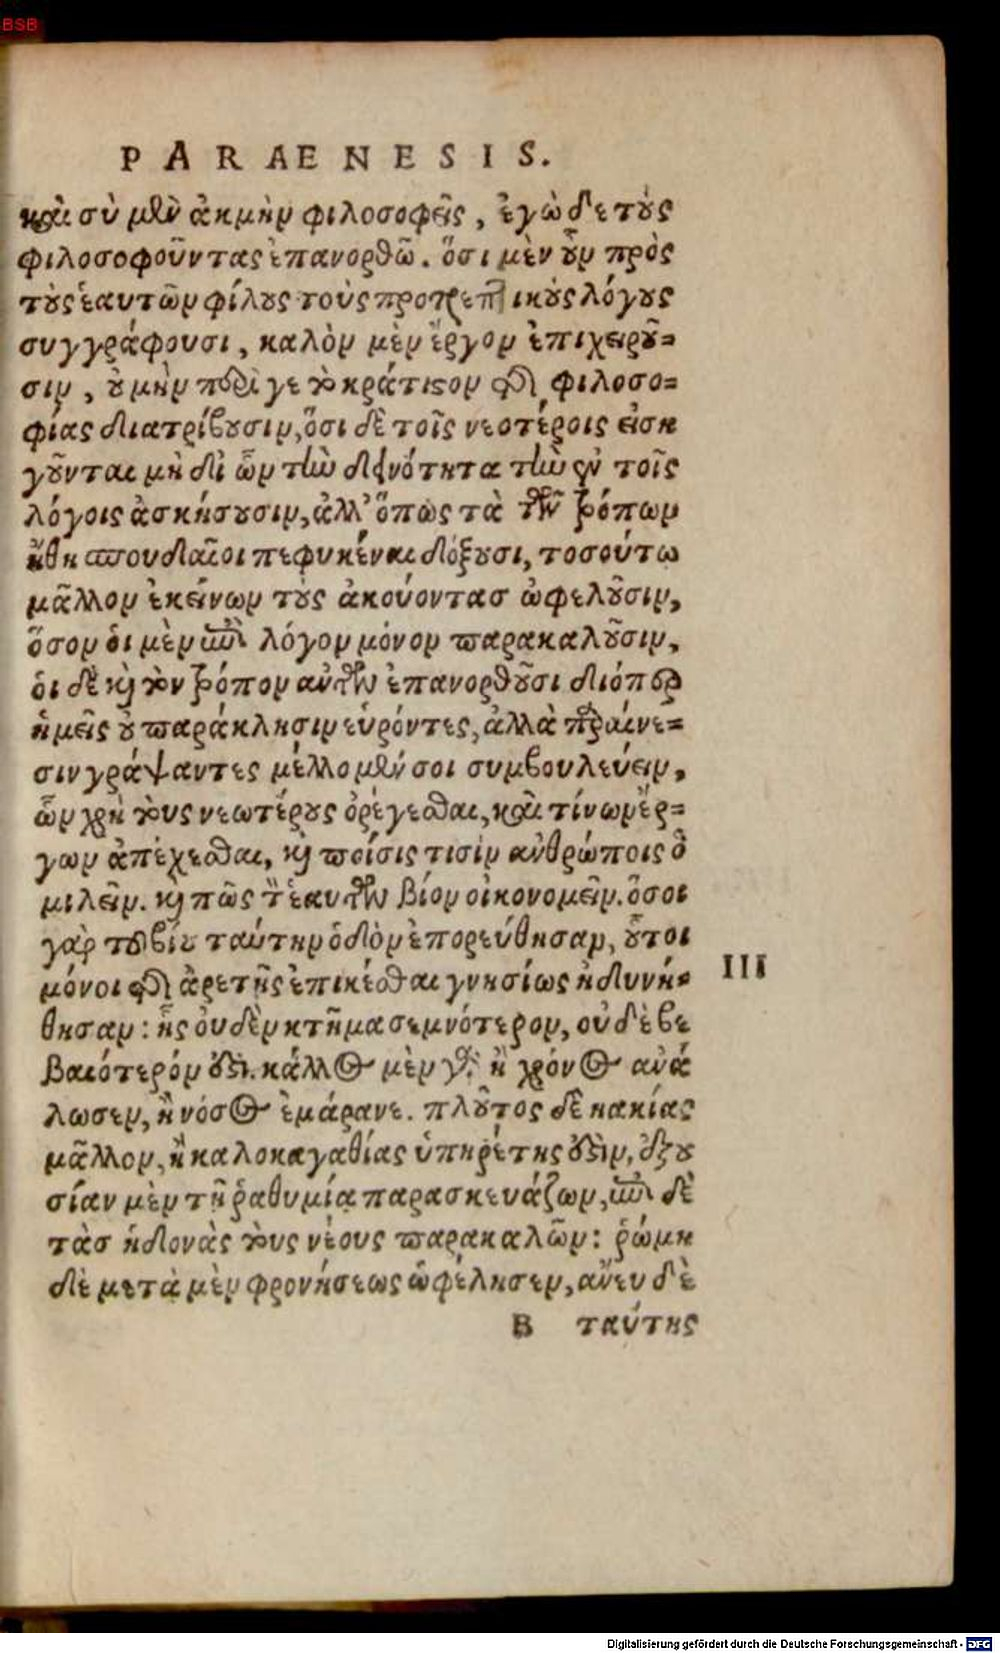 BSB
PARAENESIS.
καὶ σὺ μὲν ἀκμὴν φιλοσοφεῖς, ἐγὼ δὲ τοὺς
φιλοσοφοῦντας ἐπανορθῶ. ὅσι μὲν οὖν πρὸς
τοὺς ἑαυτῶν φίλους τοὺς προτρεπτικοὺς λόγους
συγγράφουσι, καλὸν μὲν ἔργον ἐπιχειροῦ=
σιν, οὐ μὴν περὶ γε τὸ κράτιστον τῆς φιλοσο=
φίας διατρίβουσιν, ὅσι δὲ τοῖς νεοτέροις εἰση
γοῦνται μὴ δι ὧν τὴν δεινότητα τὴν ἐν τοῖς
λόγοις ἀσκήσουσιν, ἀλλ' ὅπως τὰ τῶν τρόπων
ἤθη σπουδαῖοι πεφυκέναι δόξουσι, τοσούτω
μᾶλλον ἐκείνων τοὺς ἀκούοντασ ὠφελοῦσιν,
ὅσον ὁι μὲν ἐπὶ λόγον μόνον παρακαλοῦσιν,
ὁι δὲ καὶ τὸν τρόπον αὐτῶν ἐπανορθοῦσι διόπερ
ἡμεῖς οὐ παράκλησιν εὑρόντες, ἀλλὰ παραίνε=
σιν γράψαντες μέλλομέν σοι συμβουλεύειν,
ὧν χρὴ τοὺς νεωτέρους ὀρέγεσθαι, καὶ τίνων ἔρ=
γων ἀπέχεσθαι, καὶ ποίσις τισὶν ἀνθρώποις ὁ
μιλεῖν. καὶ πῶς τὸν ἑαυτῶν βίον οἰκονομεῖν. ὅσοι
γὰρ τοῦ βίου ταύτην ὁδὸν ἐπορεύθησαν, οὗτοι
μόνοι τῆς ἀρετῆς ἐπικέσθαι γνησίως ἠδυνή=
III
θησαν: ἧς οὐδὲν κτῆμα σεμνότερον, οὐδὲ βε
βαιότερόν ἐστι. κάλλος μὲν γὰρ ἢ χρόνος ανά
λωσεν, ἢ νόσος ἐμάρανε. πλοῦτος δὲ κακίας
μᾶλλον, ἢ καλοκαγαθίας ὑπηρέτης ἐστὶν, ἐξου
σίαν μὲν τῇ ῥαθυμίᾳ παρασκευάζων, ἐπὶ δὲ
τὰσ ἡδονὰς τοὺς νέους παρακαλῶν: ῥώμη
δὲ μετὰ μὲν φρονήσεως ὠφέλησεν, ἄνευ δὲ
B ταύτης
Digitalisierung gefördert durch die Deutsche Forschungsgemeinschaft - DFG